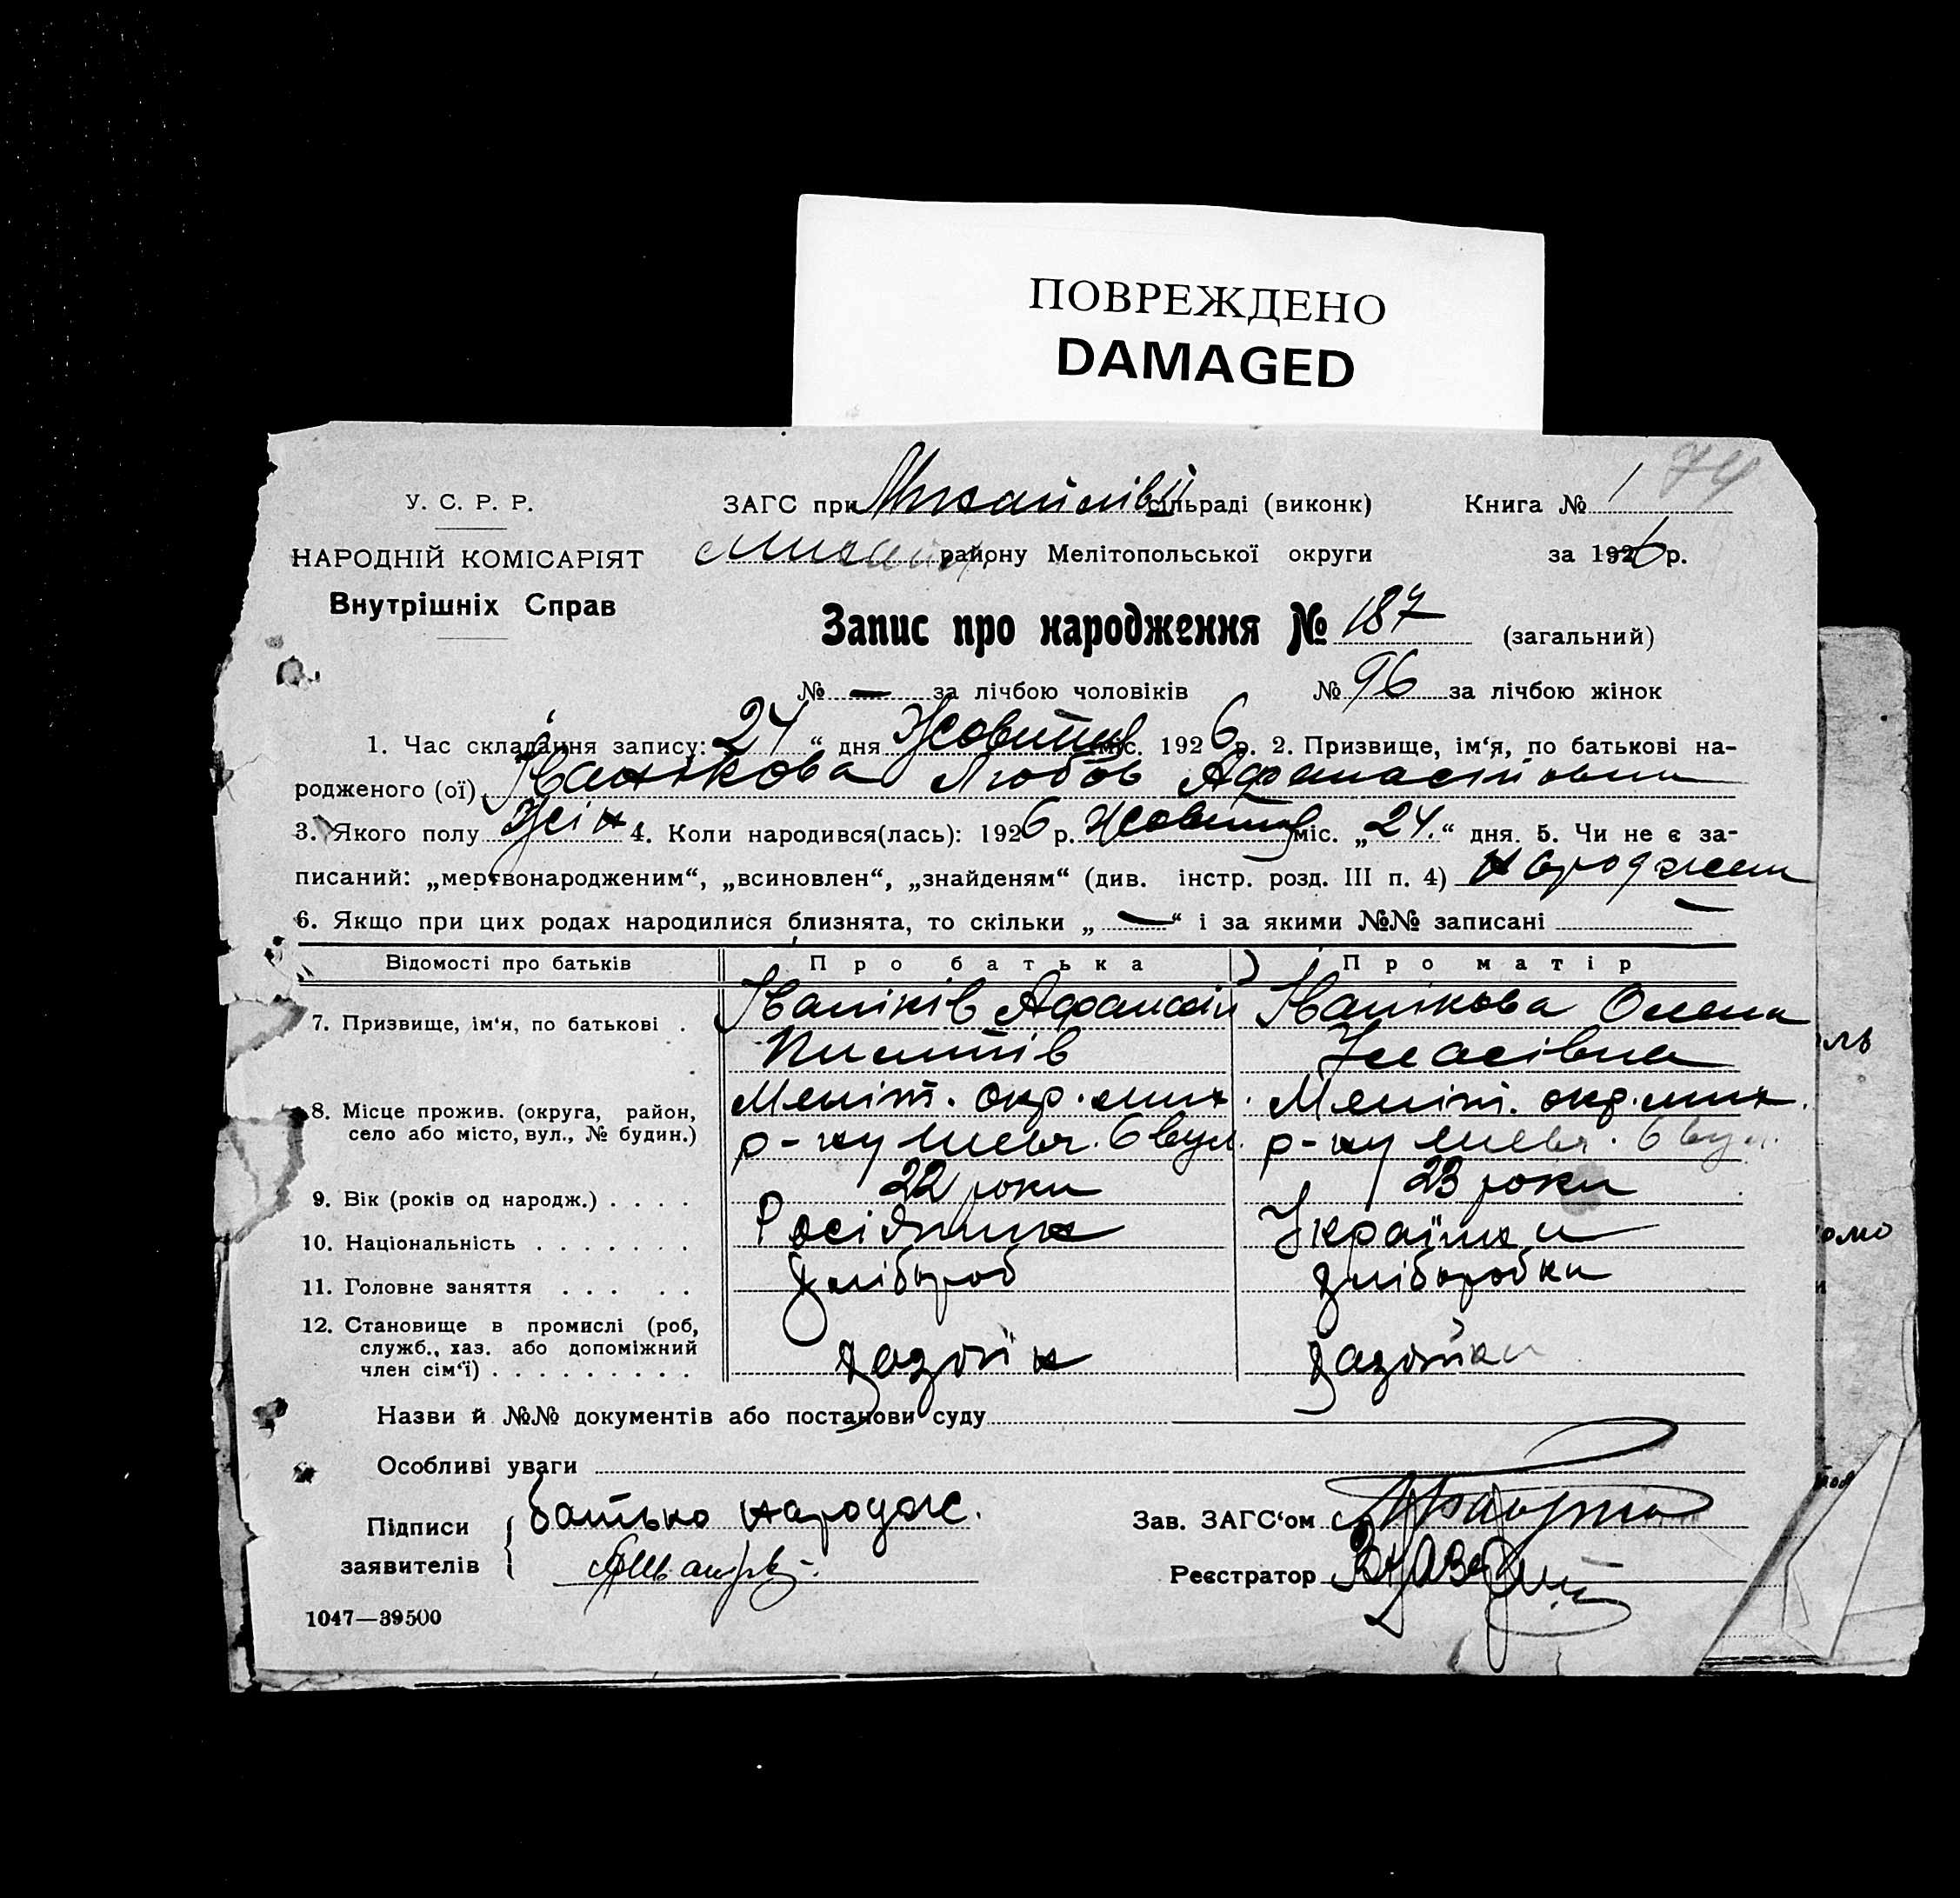 ПОВРЕЖДЕНО
DAMAGED
74
У. С. Р. Р. ЗАГС при Михайлівці сільраді (виконк) Книга № 1
НАРОДНІЙ КОМІСАРІЯТ району Мелітопольської округи за 1926 р.
Внутрішніх Справ
Запис про народження № 187 (загальний)
№ — за лічбою чоловіків № 96 за лічбою жінок
1. Час складання запису: 24 “ дня Жовтня міс. 1926 р. 2. Призвище, ім‘я, по батькові на-
родженого (ої) Іванікова Любов Афанасійовна
3. Якого полу Жін 4. Коли народився(лась): 1926 р. Жовтня міс. „ 24. “ дня. 5. Чи не є за-
писаний: „мертвонародженим“, „всиновлен“, „знайденям“ (див. інстр. розд. III п. 4) народжен
6. Якщо при цих родах народилися близнята, то скільки „ — “ і за якими №№ записані —
Відомості про батьків Про батька Про матір
7. Призвище, ім‘я, по батькові . Іваніків Афанасій Іванікова Олена
Уласівна
8. Місце прожив. (округа, район, Меліт. окр. мих. Меліт. окр. мих.
село або місто, вул., № будин.) р-ну 6 вул. р-ну 6 вул.
9. Вік (років од народж.) . . . . 22 роки 23 роки
10. Національність . . . . . . . Росіянин Українка
11. Головне заняття . . . . . хлібороб хліборобка
12. Становище в промислі (роб,
служб., хаз. або допоміжний
член сім‘ї) . . . . . . . . . хазяїн хазяйка
Назви й №№ документів або постанови суду
Особливі уваги
Підписи батько народж. Зав. ЗАГС‘ом
заявителів Реєстратор
1047—39500